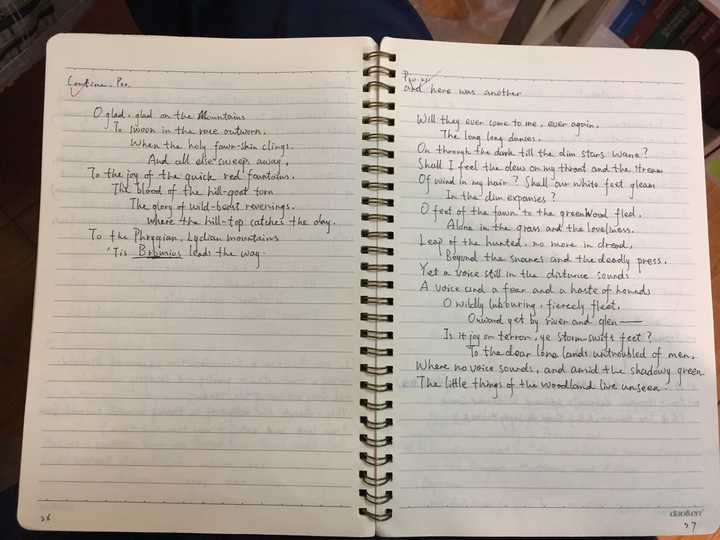 Continue - Poe.
O glad, glad on the Mountains
To swoon in the race outworn,
When the holy fawn-skin clings,
And all else sweeps away,
To the joy of the quick red fountains,
The blood of the hill-goat torn
The glory of wild-beast revenings.
Where the hill-top catches the day,
To the Phrygian, Lydian mountains
'Tis Bromius leads the way.
26
and here was another
Will they ever come to me, ever again,
The long long dances,
On through the dark till the dim stars wane?
Shall I feel the dew on my throat and the stream
Of wind in my hair? Shall our white feet gleam
In the dim expanses?
O feet of the fawn to the greenwood fled,
Alone in the grass and the loveliness.
Leap of the hunted, no more in dread,
Beyond the snares and the deadly press.
Yet a voice still in the distance sounds
A voice and a fear and a haste of hounds
O wildly labouring, fiercely fleet,
Onward yet by river and glen—
Is it joy or terror, ye storm-swift feet?
To the dear lone lands untroubled of men,
Where no voice sounds, and amid the shadowy green.
The little things of the woodland live unseen.
27